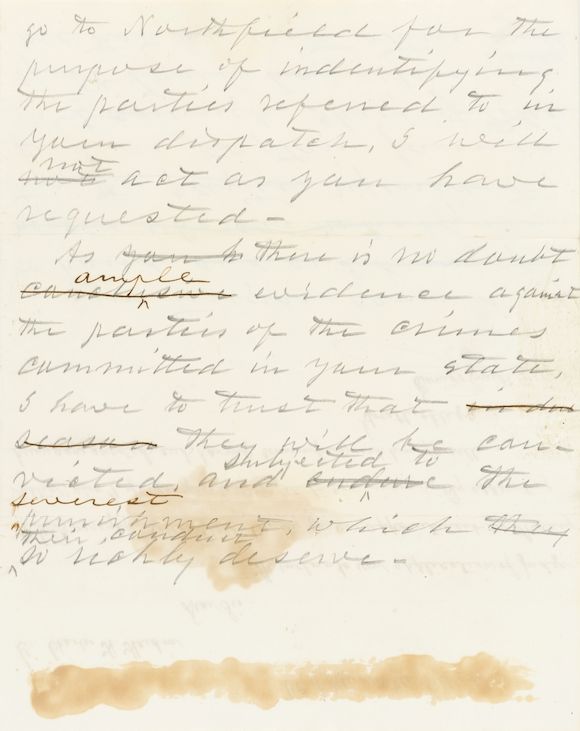 go to Northfield for the
purpose of indentifying
the parties referred to in
your dispatch, I will
not
act as you have
requested -
As you h there is no doubt
ample
conclusive evidence against
the parties of the crimes
committed in your state,
I have to trust that in due
season they will be con-
subjected to
victed, and endure the
severest
punishment, which they
their conduct
so richly deserve -